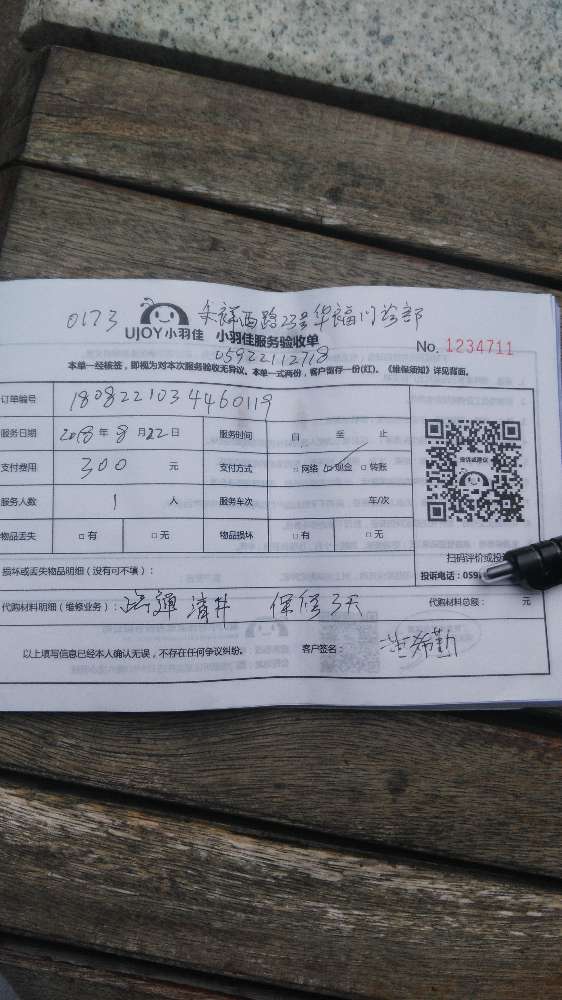 0173 禾祥西路23号华福门诊部
UJOY小羽佳 小羽佳服务验收单
No. 1234711
05922112718
本单一经核签，即视为对本次服务验收无异议。本单一式两份，客户留存一份(红)。《维保须知》详见背面。
订单编号 1808221034460119
服务日期 2018 年 8 月 22 日 服务时间 自 至 止
投诉或建议
支付费用 300 元 支付方式 □ 网络 ☑ 现金 □ 转账
服务人数 1 人 服务车次 车/次
物品丢失 □ 有 □ 无 物品损坏 □ 有 □ 无
扫码评价或投
损坏或丢失物品明细（没有可不填）：
投诉电话：059
代购材料明细（维修业务）： 清井 保修3天 代购材料总额： 元
以上填写信息已经本人确认无误，不存在任何争议纠纷。 客户签名： 希勤